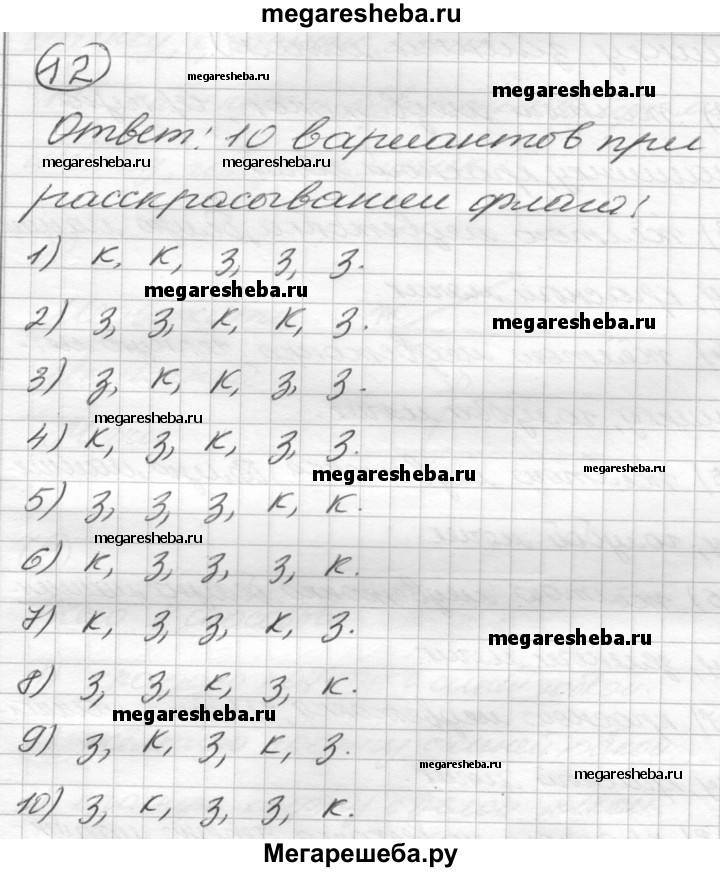 megaresheba.ru
12
megaresheba.ru
megaresheba.ru
Ответ: 10 вариантов при
megaresheba.ru megaresheba.ru
расскрасывании флага:
1) к, к, з, з, з.
megaresheba.ru
2) з, з, к, к, з.
megaresheba.ru
3) з, к, к, з, з.
megaresheba.ru
4) к, з, к, з, з.
megaresheba.ru
megaresheba.ru
5) з, з, з, к, к.
megaresheba.ru
6) к, з, з, з, к.
7) к, з, з, к, з.
megaresheba.ru
8) з, з, к, з, к.
megaresheba.ru
9) з, к, з, к, з.
megaresheba.ru
megaresheba.ru
10) з, к, з, з, к.
Мегарешеба.ру